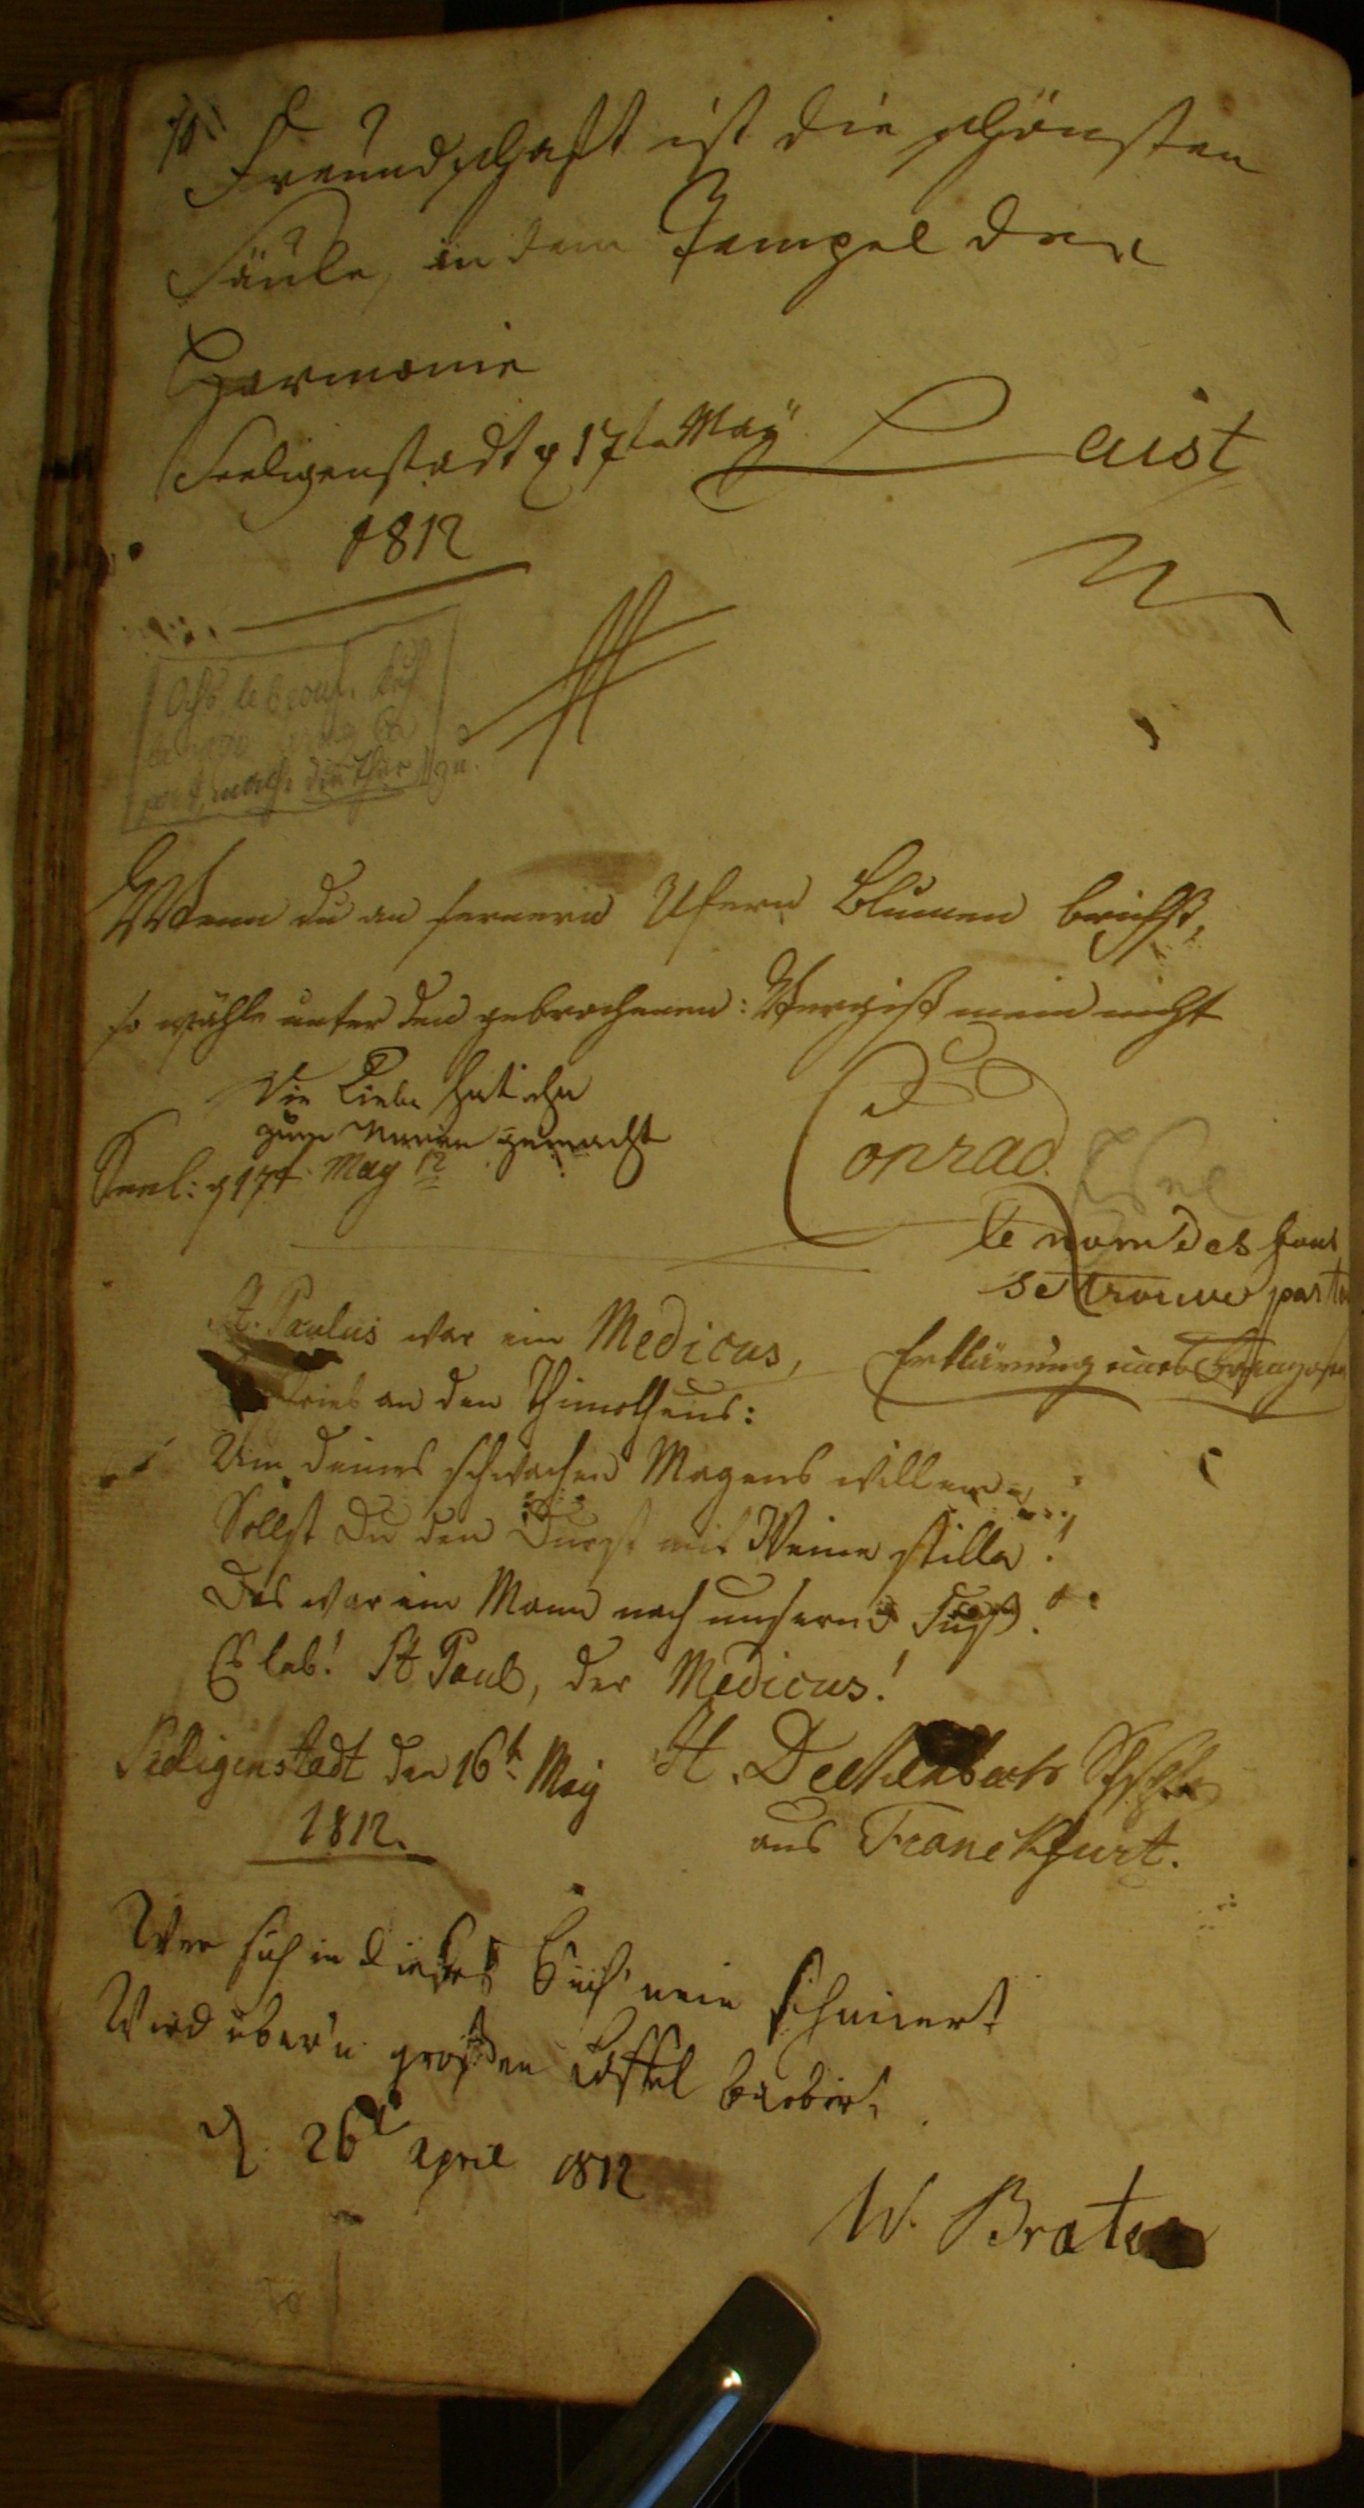 Freundschaft ist die schönsten
Säule, in dem Tempel der
Harmonie
Seeligenstadt d 17te May
Laist
1812
mach die Thür zu.
Wenn du an fernern Ufern Blumen brichst,
so wähle unter den gebrochenen: Vergiß mein nicht
Die Liebe hat ihn
zum Narren gemacht
Seel: d 17t May 12
Conrad.
Esel
le nom des fous
se trouve
St. Paulus war ein Medicus,
Erklärung eines
an den Thimotheus:
Um deines schwachen Magens willen
Sollst Du den Durst mit Weine stille!
Das war ein Mann nach unserm Fuß!
Es leb! St Paul, der Medicus!
Seeligenstadt den 16t May
1812.
aus Franckfurt.
Wer sich in dieses Buch nein schmiert
Wird über'n großen Löffel barbirt.
d. 26t April 1812
W. Braten